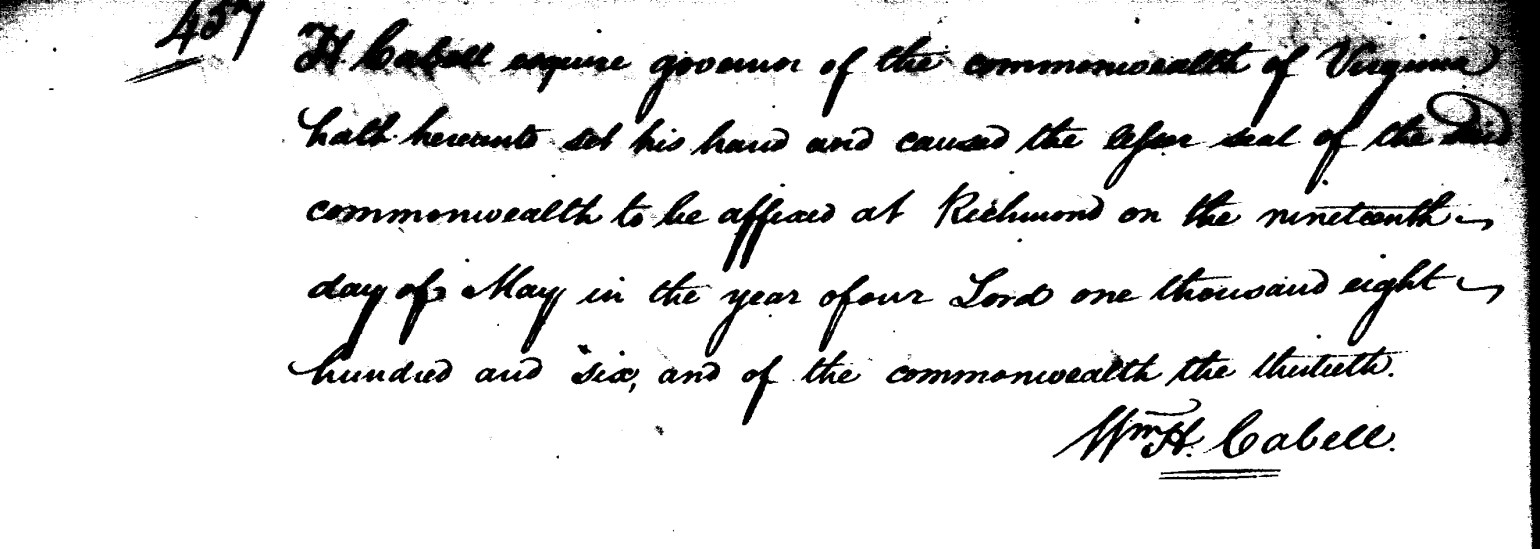 457
H. Cabell esquire governor of the commonwealth of Virginia
hath hereunto set his hand and caused the lesser seal of the said
commonwealth to be affixed at Richmond on the nineteenth
day of May in the year of our Lord one thousand eight
hundred and six, and of the commonwealth the thirtieth.
Wm H. Cabell.